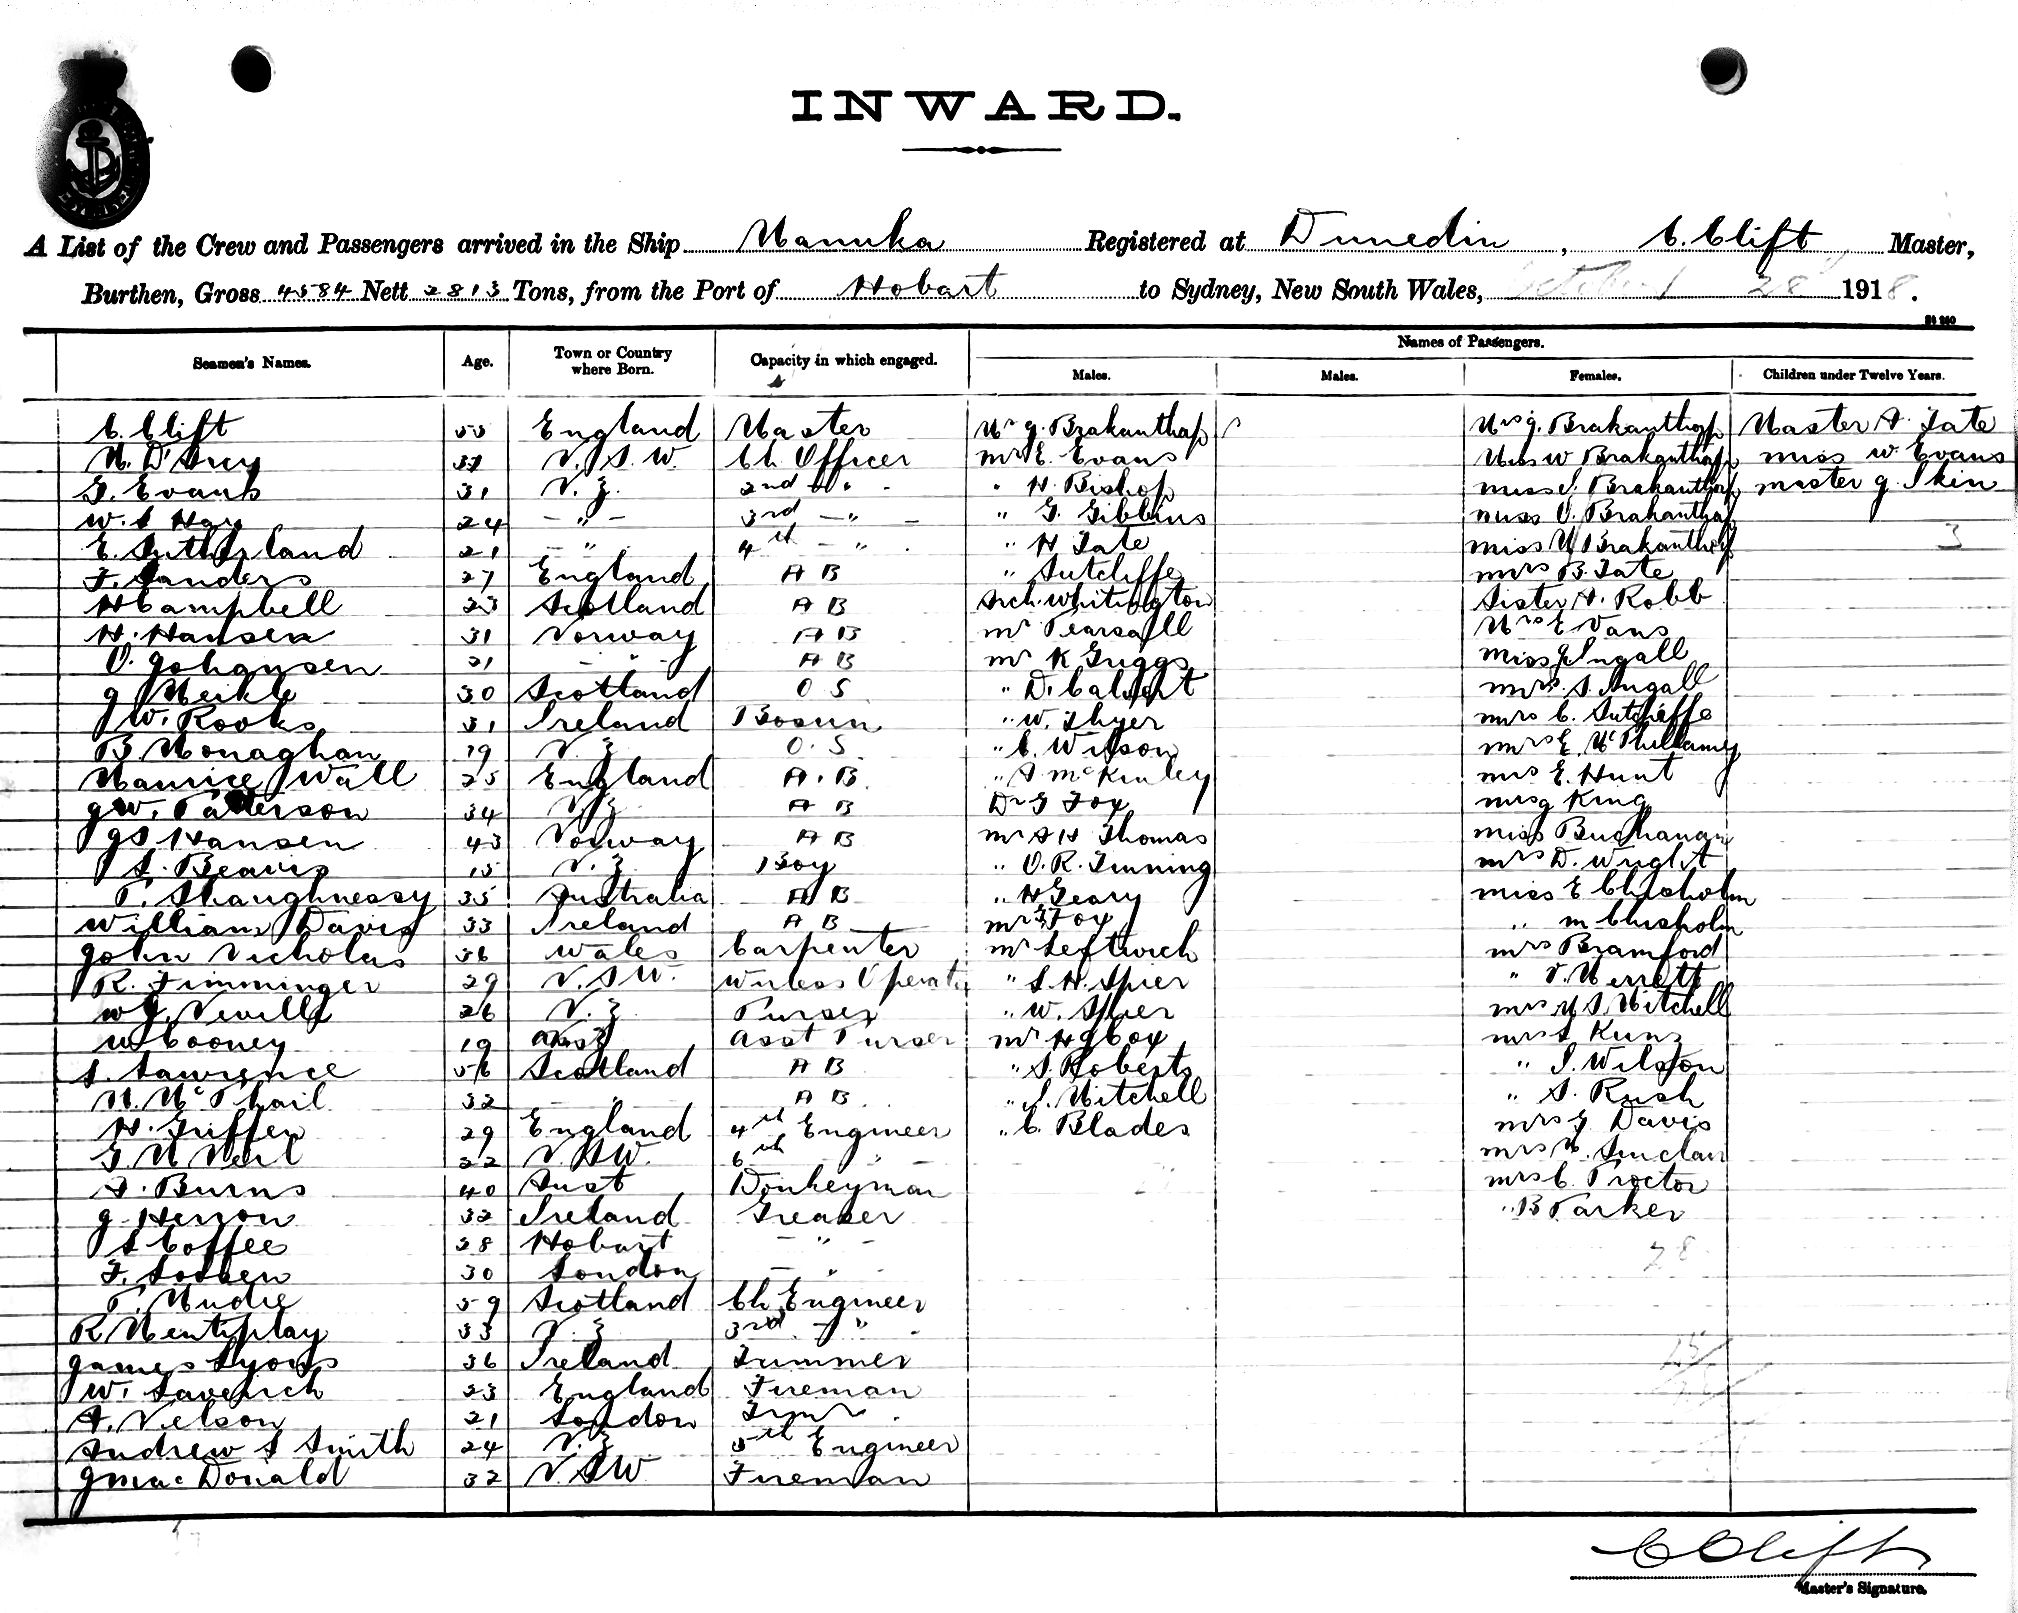 INWARD.
A List of the Crew and Passengers arrived in the Ship Manuka Registered at Dunedin, C. Clift Master,
Burthen, Gross 4584 Nett 2813 Tons, from the Port of Hobart to Sydney, New South Wales, October 28 1918.
Names of Passengers.
Seamen's Names. Age. Town or Country where Born. Capacity in which engaged. Males. Males. Females. Children under Twelve Years.
C. Clift 55 England Master Mr J. Brakanthap Mrs J. Brakanthap Master A. Tate
M. D'Arcy 37 N.S.W. Ch Officer Mr E. Evans Miss W Brakanthap Miss W. Evans
G. Evans 31 N.Z. 2nd " " H. Bishop Miss I. Brakanthap Master G. Skin
W. S Hay 24 - " - 3rd - " - " G. Gibbins Miss O. Brakanthap
E. Sutherland 21 - " - 4th - " " H Tate Miss M Brakanthap 3
F. Sanders 27 England A B " Sutcliffe Mrs B. Tate
H Campbell 23 Scotland A B Arch. Whitington Sister A. Robb
H. Hansen 31 Norway A B Mr Pearsall Mrs E Vans
O. Johansen 21 - " - A B Mr K Griggs Miss J Ingall
J Meikle 30 Scotland O S " D. Calvert Mrs S. Ingall
W. Rooks 31 Ireland Bosun " W. Thyer Mrs C. Sutcliffe
B Monaghan 19 N.Z O. S " C. Wilson Mrs E. McPhillamey
Maurice Wall 25 England A. B. " A McKinley Mrs E. Hunt
J W. Patterson 34 N.Z A B Dr G Fox Mrs J King
J S Hansen 43 Norway A B Mr A H Thomas Miss Buchanan
S. Beavis 15 N.Z Boy " O. R. Finning Mrs D. Wright
P. Shaughnessy 35 Australia A B " H Geary Miss E Chisholm
William Davis 33 Ireland A B Mr G Fox " M Chisholm
John Nicholas 36 Wales Carpenter Mr Leftwich Mrs Bramford
R. Timminger 29 N.S.W. Wireless Operator " S. H. Spier " V. Merrett
W J. Nevill 26 N.Z. Purser " W. Spier Mrs M S. Mitchell
W Cooney 19 Asst Purser Mr H J Cox Mrs L Kunz
S. Lawrence 56 Scotland A B " S. Roberts " J. Wilson
N. McPhail 32 - " A B " J. Mitchell " S. Rush
H. Griffen 29 England 4th Engineer " C. Blades Mrs G Davis
G M Neil 22 N.S.W. 6th " Mrs M. Sinclair
A. Burns 40 Aust Donkeyman Mrs C. Proctor
J Herron 32 Ireland Greaser " B Parker
S Coffee 28 Hobart - " - 28
F. 30 London - " -
P. Mudie 59 Scotland Ch Engineer
R Mentiplay 33 N.Z 3rd - " -
James Lyons 36 Ireland Trimmer
W. Laverick 23 England Fireman
A. Nelson 21 London Trimr
Andrew S Smith 24 N.Z. 5th Engineer
J Mac Donald 32 N.S.W Fireman
C Clift
Master's Signature.